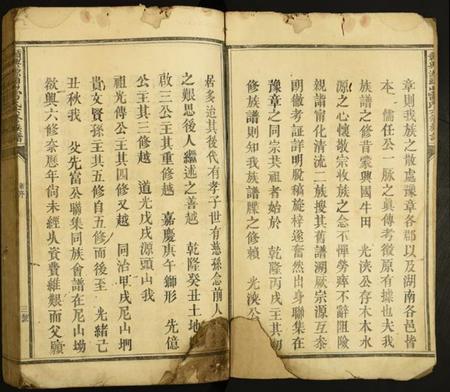 章則我族之散處豫章各郡以及湖南各邑皆
本 儒任公一脉之真傳考徵原有據也夫我
族譜之修昔蒙興國牛田 光浹公存木本水
源之心懷敬宗收族之念不憚勞瘁不辭阻險
親詣甯化清流二族搜其舊譜溯厥宗源互叅
明徹考証詳明脫稿旋梓遂奮然出身聯集在
豫章之同宗共祖者始於 乾隆丙戌主其初
修族譜則知我族譜牒之修賴 光浹公
居多迨其後代有孝子世有慈孫念前人
之艱思後人繼述之善越 乾隆癸丑土地
啟三公主其重修越 嘉慶庚午獅形 先億
公主其三修越 道光戊戌源頭山我
祖光傳公主其四修又越 同治甲戌尼山堈
貴文賢孫主其五修自五修而後至 光緒己
丑秋我 父先富公聯集同族會譜在尼山堈
欲興六修奈應年尙未經乆資費維艱而父願